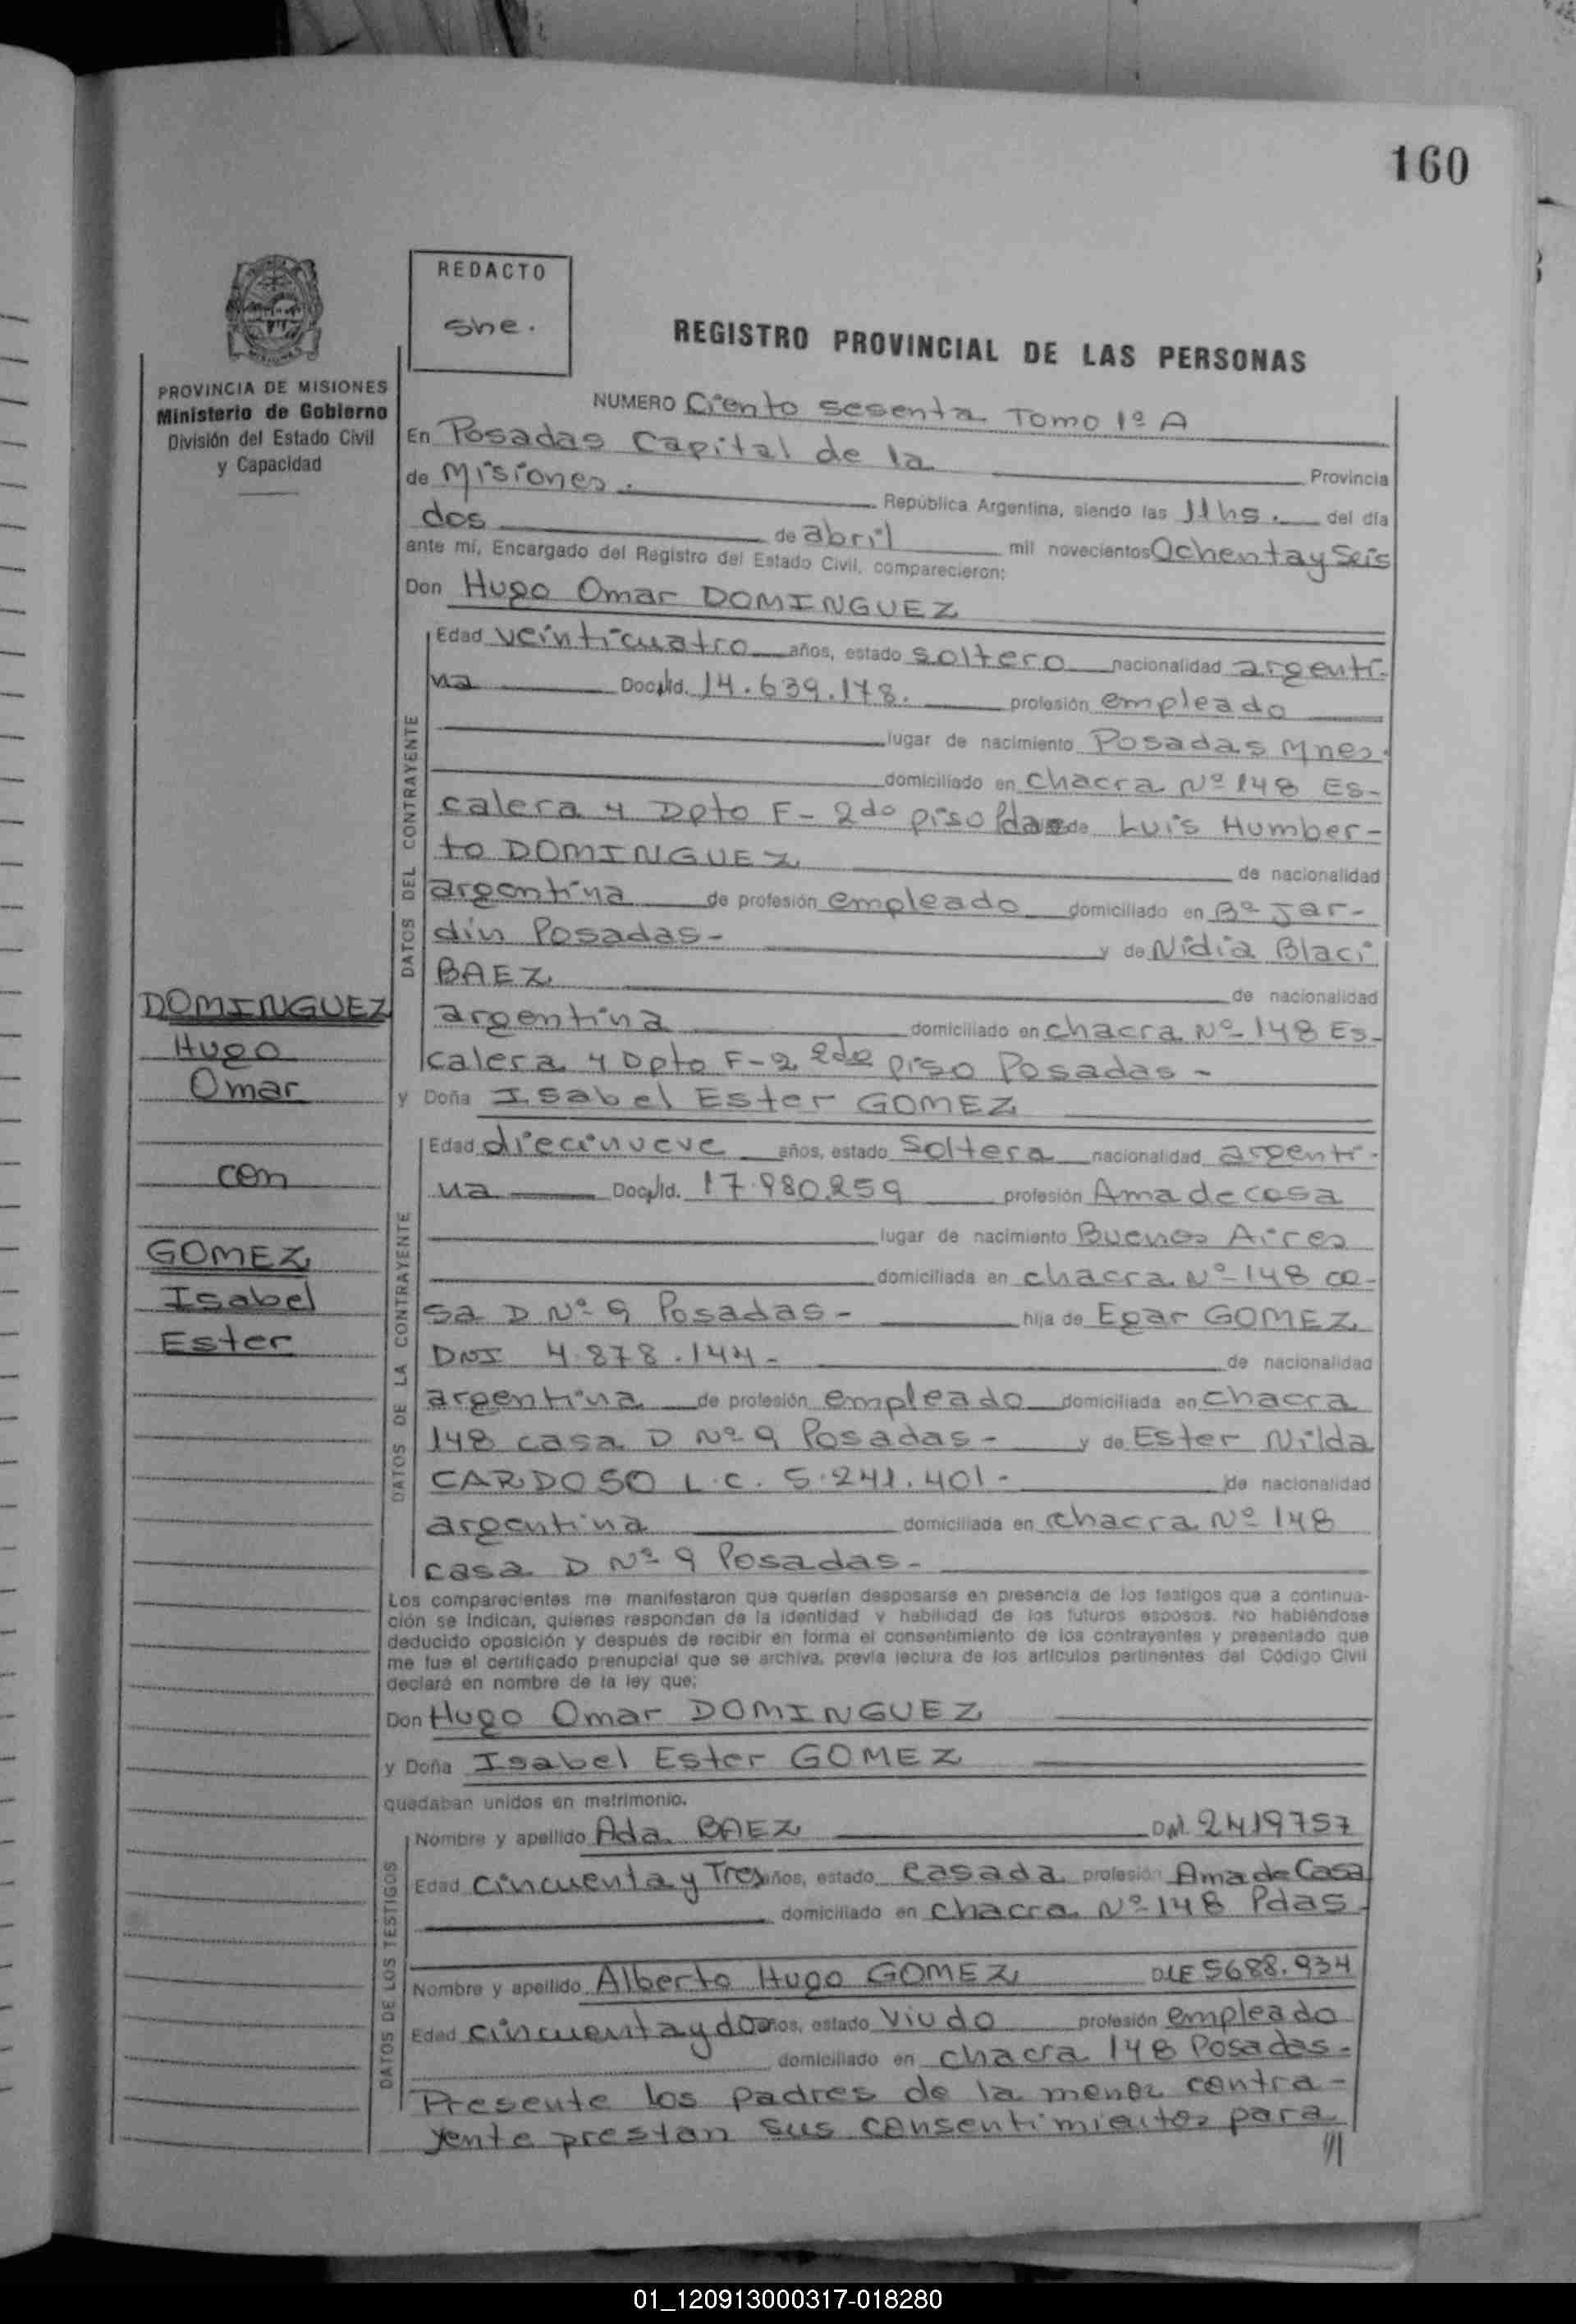 160
REDACTO
she.
REGISTRO PROVINCIAL DE LAS PERSONAS
PROVINCIA DE MISIONES
Ministerio de Gobierno
División del Estado Civil
y Capacidad
NUMERO Ciento sesenta Tomo 1º A
En Posadas Capital de la Provincia
de Misiones. República Argentina, siendo las 11hs. del día
dos de abril mil novecientos Ochenta y Seis
ante mí, Encargado del Registro del Estado Civil, comparecieron:
Don Hugo Omar DOMINGUEZ
DATOS DEL CONTRAYENTE
Edad veinticuatro años, estado soltero nacionalidad argenti-
na Doc. Id. 14.639.178. profesión empleado
lugar de nacimiento Posadas Mnes.
domiciliado en chacra Nº 148 Es-
calera 4 Dpto F- 2do piso Pdas de Luis Humber-
to DOMINGUEZ de nacionalidad
argentina de profesión empleado domiciliado en Bº Jar-
din Posadas- y de Nidia Blaci
BAEZ de nacionalidad
argentina domiciliado en chacra Nº 148 Es-
calera 4 Dpto F-2 2do piso Posadas-
y Doña Isabel Ester GOMEZ
DOMINGUEZ
Hugo
Omar
con
GOMEZ
Isabel
Ester
DATOS DE LA CONTRAYENTE
Edad diecinueve años, estado Soltera nacionalidad argenti-
na Doc. Id. 17.980.259 profesión Ama de casa
lugar de nacimiento Buenos Aires
domiciliada en chacra Nº 148 ca-
sa D Nº 9 Posadas- hija de Egar GOMEZ
DNI 4.878.144- de nacionalidad
argentina de profesión empleado domiciliada en chacra
148 casa D Nº 9 Posadas- y de Ester Nilda
CARDOSO L.C. 5.241.401- de nacionalidad
argentina domiciliada en chacra Nº 148
casa D Nº 9 Posadas-
Los comparecientes me manifestaron que querían desposarse en presencia de los testigos que a continua-
ción se indican, quienes responden de la identidad y habilidad de los futuros esposos. No habiéndose
deducido oposición y después de recibir en forma el consentimiento de los contrayentes y presentado que
me fue el certificado prenupcial que se archiva, previa lectura de los artículos pertinentes del Código Civil
declaré en nombre de la ley que:
Don Hugo Omar DOMINGUEZ
y Doña Isabel Ester GOMEZ
quedaban unidos en matrimonio.
DATOS DE LOS TESTIGOS
Nombre y apellido Ada BAEZ 2419757
Edad cincuenta y Tres años, estado casada profesión Ama de Casa
domiciliado en chacra Nº 148 Pdas.
Nombre y apellido Alberto Hugo GOMEZ DLE 5688.934
Edad cincuenta y dos años, estado viudo profesión empleado
domiciliado en chacra 148 Posadas-
Presente los padres de la menor contra-
yente prestan sus consentimientos para
01_120913000317-018280